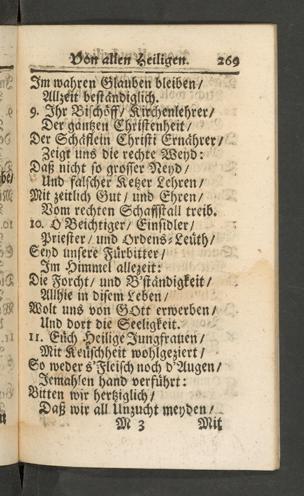 Von allen Heiligen. 269
Im wahren Glauben bleiben/
Allzeit beständiglich.
9. Ihr Bischöff/ Kirchenlehrer/
Der gantzen Christenheit/
Der Schäflein Christi Ernährer/
Zeigt uns die rechte Weyd:
Daß nicht so grosser Neyd/
Und falscher Ketzer Lehren/
Mit zeitlich Gut/ und Ehren/
Vom rechten Schaffstall treib.
10. O Beichtiger/ Einsidler/
Priester/ und Ordens-Leuth/
Seyd unsere Fürbitter/
Im Himmel allezeit:
Die Forcht/ und B'ständigkeit/
Allhie in disem Leben/
Wolt uns von GOtt erwerben/
Und dort die Seeligkeit.
11. Euch Heilige Jungfrauen/
Mit Keuschheit wohlgeziert/
So weder s'Fleisch noch d'Augen/
Jemahlen hand verführt:
Bitten wir hertziglich/
Daß wir all Unzucht meyden/
M 3 Mit